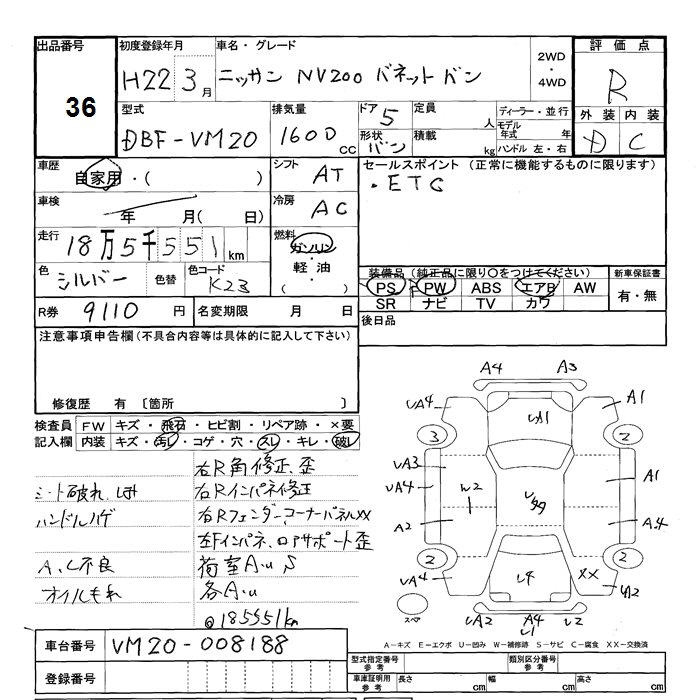 出品番号
36
初度登録年月
H22 3月
車名・グレード
ニッサン NV200 バネットバン
2WD
・
4WD
評価点
R
型式
DBF-VM20
排気量
1600 CC
ドア 5
形状 バン
定員 人
積載 kg
ディーラー・並行
モデル年式 年
ハンドル 左・右
外装 内装
D C
車歴
自家用・( )
シフト AT
セールスポイント (正常に機能するものに限ります)
・ETC
車検
年 月( 日)
冷房 AC
走行
18万5千551km
燃料
ガソリン
・
軽油
・
( )
色
シルバー
色替
色コード
K23
装備品 (純正品に限り○をつけてください)
PS PW ABS エアB AW
SR ナビ TV カワ
新車保証書
有・無
R券 9110 円
名変期限 月 日
後日品
注意事項申告欄 (不具合内容等は具体的に記入して下さい)
修復歴 有 〔箇所 〕
検査員記入欄
FW キズ・飛石・ヒビ割・リペア跡・×要
内装 キズ・汚レ・コゲ・穴・スレ・キレ・破レ
右R角修正、歪
シート破れ
右Rインパネ修正
ハンドルハゲ
右Rフェンダー、コーナーパネルXX
左Fインパネ、ロアサポート歪
A、C不良
荷室A・U S
オイルもれ
各A・u
@185551km
A4 A3
UA4 A1
UA1
3 2
UA3 A1
UA4
W2
A2 A4
2 2
UA4 U4 XX U2
スペア
UA2 A4 U2
U1
A-キズ E-エクボ U-凹み W-補修跡 S-サビ C-腐食 XX-交換済
車台番号 VM20-008188
登録番号
型式指定番号 参考
類別区分番号 参考
車庫証明用 参考
長さ cm
幅 cm
高さ cm